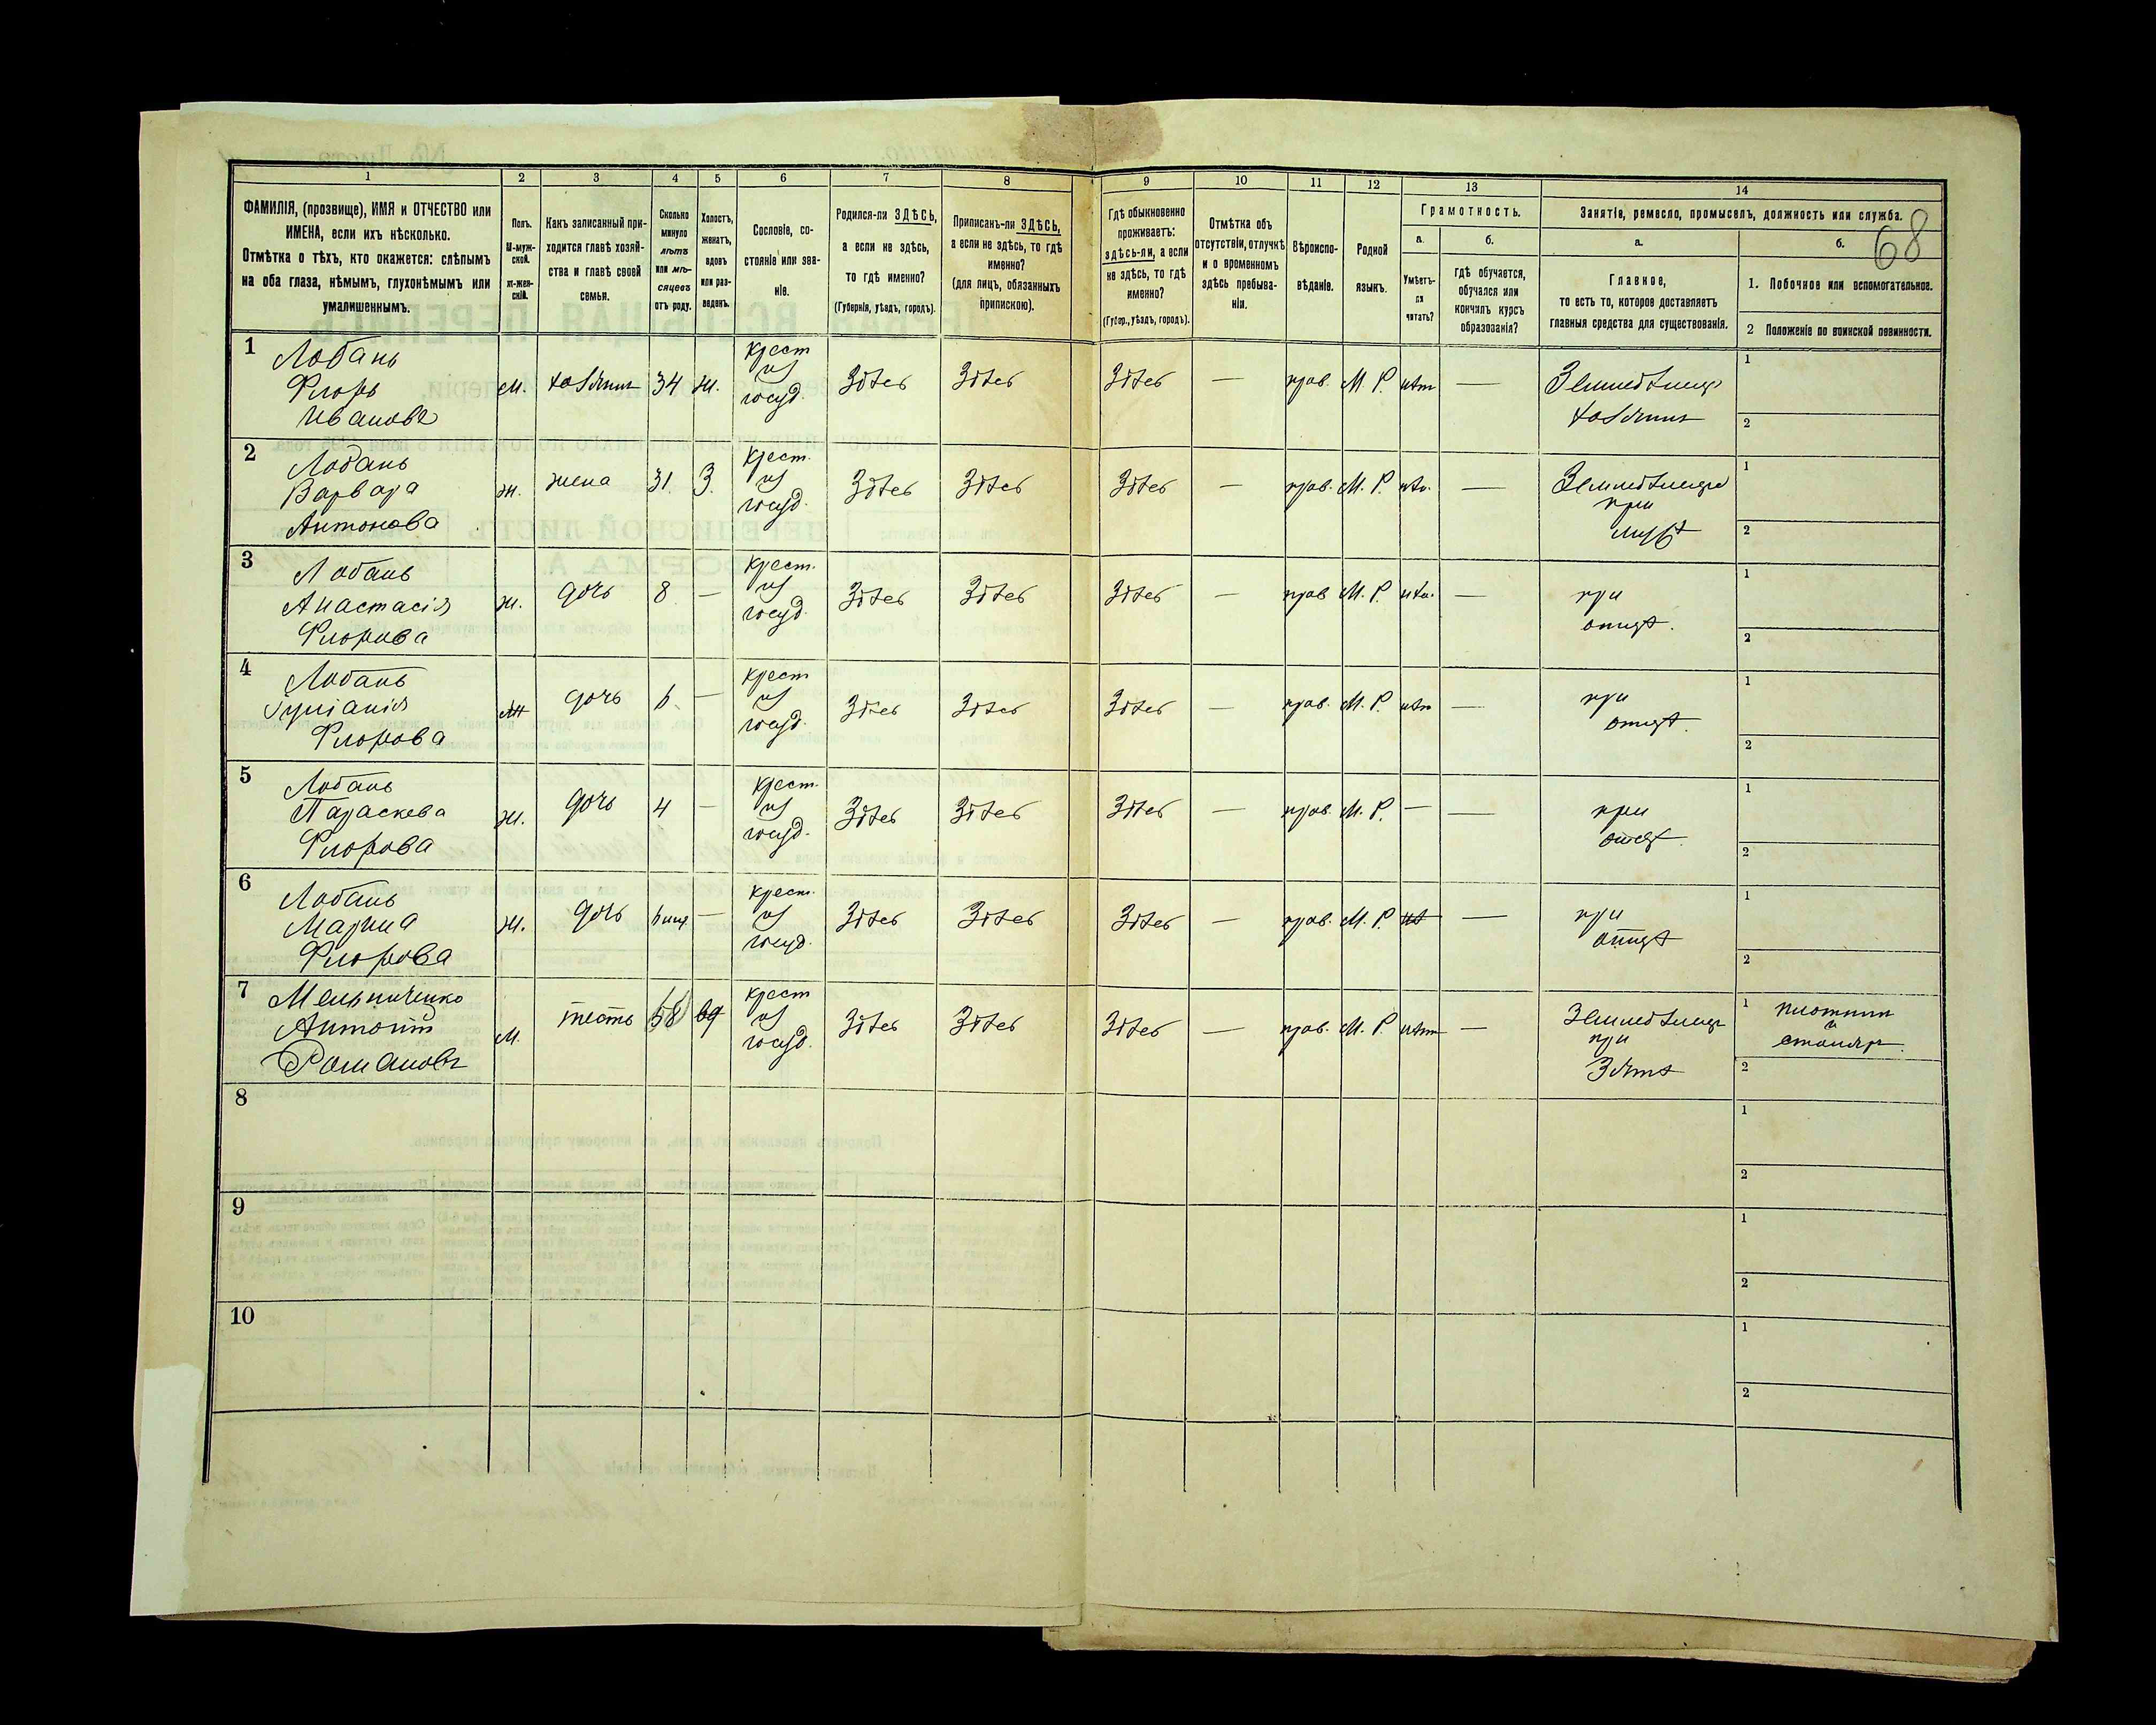 1 2 3 4 5 6 7 8 9 10 11 12 13 14
68
ФАМИЛІЯ, (прозвище), ИМЯ и ОТЧЕСТВО или
ИМЕНА, если ихъ нѣсколько.
Отмѣтка о тѣхъ, кто окажется: слѣпымъ
на оба глаза, нѣмымъ, глухонѣмымъ или
умалишеннымъ.
Полъ.
М-муж-
ской.
ж-жен-
скій.
Какъ записанный при-
ходится главѣ хозяй-
ства и главѣ своей
семьи.
Сколько
минуло
лѣтъ
или мѣ-
сяцевъ
отъ роду.
Холостъ,
женатъ,
вдовъ
или раз-
веденъ.
Сословіе, со-
стояніе или зва-
ніе.
Родился-ли ЗДѢСЬ,
а если не здѣсь,
то гдѣ именно?
(Губернія, уѣздъ, городъ).
Приписанъ-ли ЗДѢСЬ,
а если не здѣсь, то гдѣ
именно?
(для лицъ, обязанныхъ
припискою).
Гдѣ обыкновенно
проживаетъ:
здѣсь-ли, а если
не здѣсь, то гдѣ
именно?
(Губер., уѣздъ, городъ).
Отмѣтка объ
отсутствіи, отлучкѣ
и о временномъ
здѣсь пребыва-
ніи.
Вѣроиспо-
вѣданіе.
Родной
языкъ.
Грамотность.
а.
Умѣетъ-
ли
читать?
б.
гдѣ обучается,
обучался или
кончилъ курсъ
образованія?
Занятіе, ремесло, промыселъ, должность или служба.
а.
Главное,
то есть то, которое доставляетъ
главныя средства для существованія.
б.
1. Побочное или вспомогательное.
2 Положеніе по воинской повинности.
1
Лобань
Флоръ
Ивановъ
м. хозяинъ 34 ж.
крест
из
госуд.
здѣсь здѣсь здѣсь — прав. М. Р. нѣт —
Земледѣлецъ
хозяинъ
1
2
2
Лобань
Варвара
Антонова
ж. жена 31. З.
крест.
из
госуд.
здѣсь здѣсь здѣсь — прав. М. Р. нѣт. —
Земледѣлецъ
при
мужѣ
1
2
3
Лобань
Анастасія
Флорова
ж. дочь 8 —
крест.
из
госуд.
здѣсь здѣсь здѣсь — прав М. Р. нѣт. —
при
отцѣ.
1
2
4
Лобань
Іуліанія
Флорова
ж дочь 6. —
крест
из
госуд.
здѣсь здѣсь здѣсь — прав. М. Р. нѣт —
при
отцѣ.
1
2
5
Лобань
Параскева
Флорова
ж. дочь 4 —
крест.
из
госуд.
здѣсь здѣсь здѣсь — прав. М. Р. — —
при
отцѣ.
1
2
6
Лобань
Марина
Флорова
ж. дочь 6 мця —
крест.
из
госуд.
здѣсь здѣсь здѣсь — прав. М. Р. —
при
отцѣ
1
2
7
Мельниченко
Антоній
Романовъ
м. тесть 58 вд
крест
из
госуд.
здѣсь здѣсь здѣсь — прав. М. Р. нѣт —
Земледѣлецъ
при
Зятѣ
1
плотник
и
столяр.
2
8
1
2
9
1
2
10
1
2